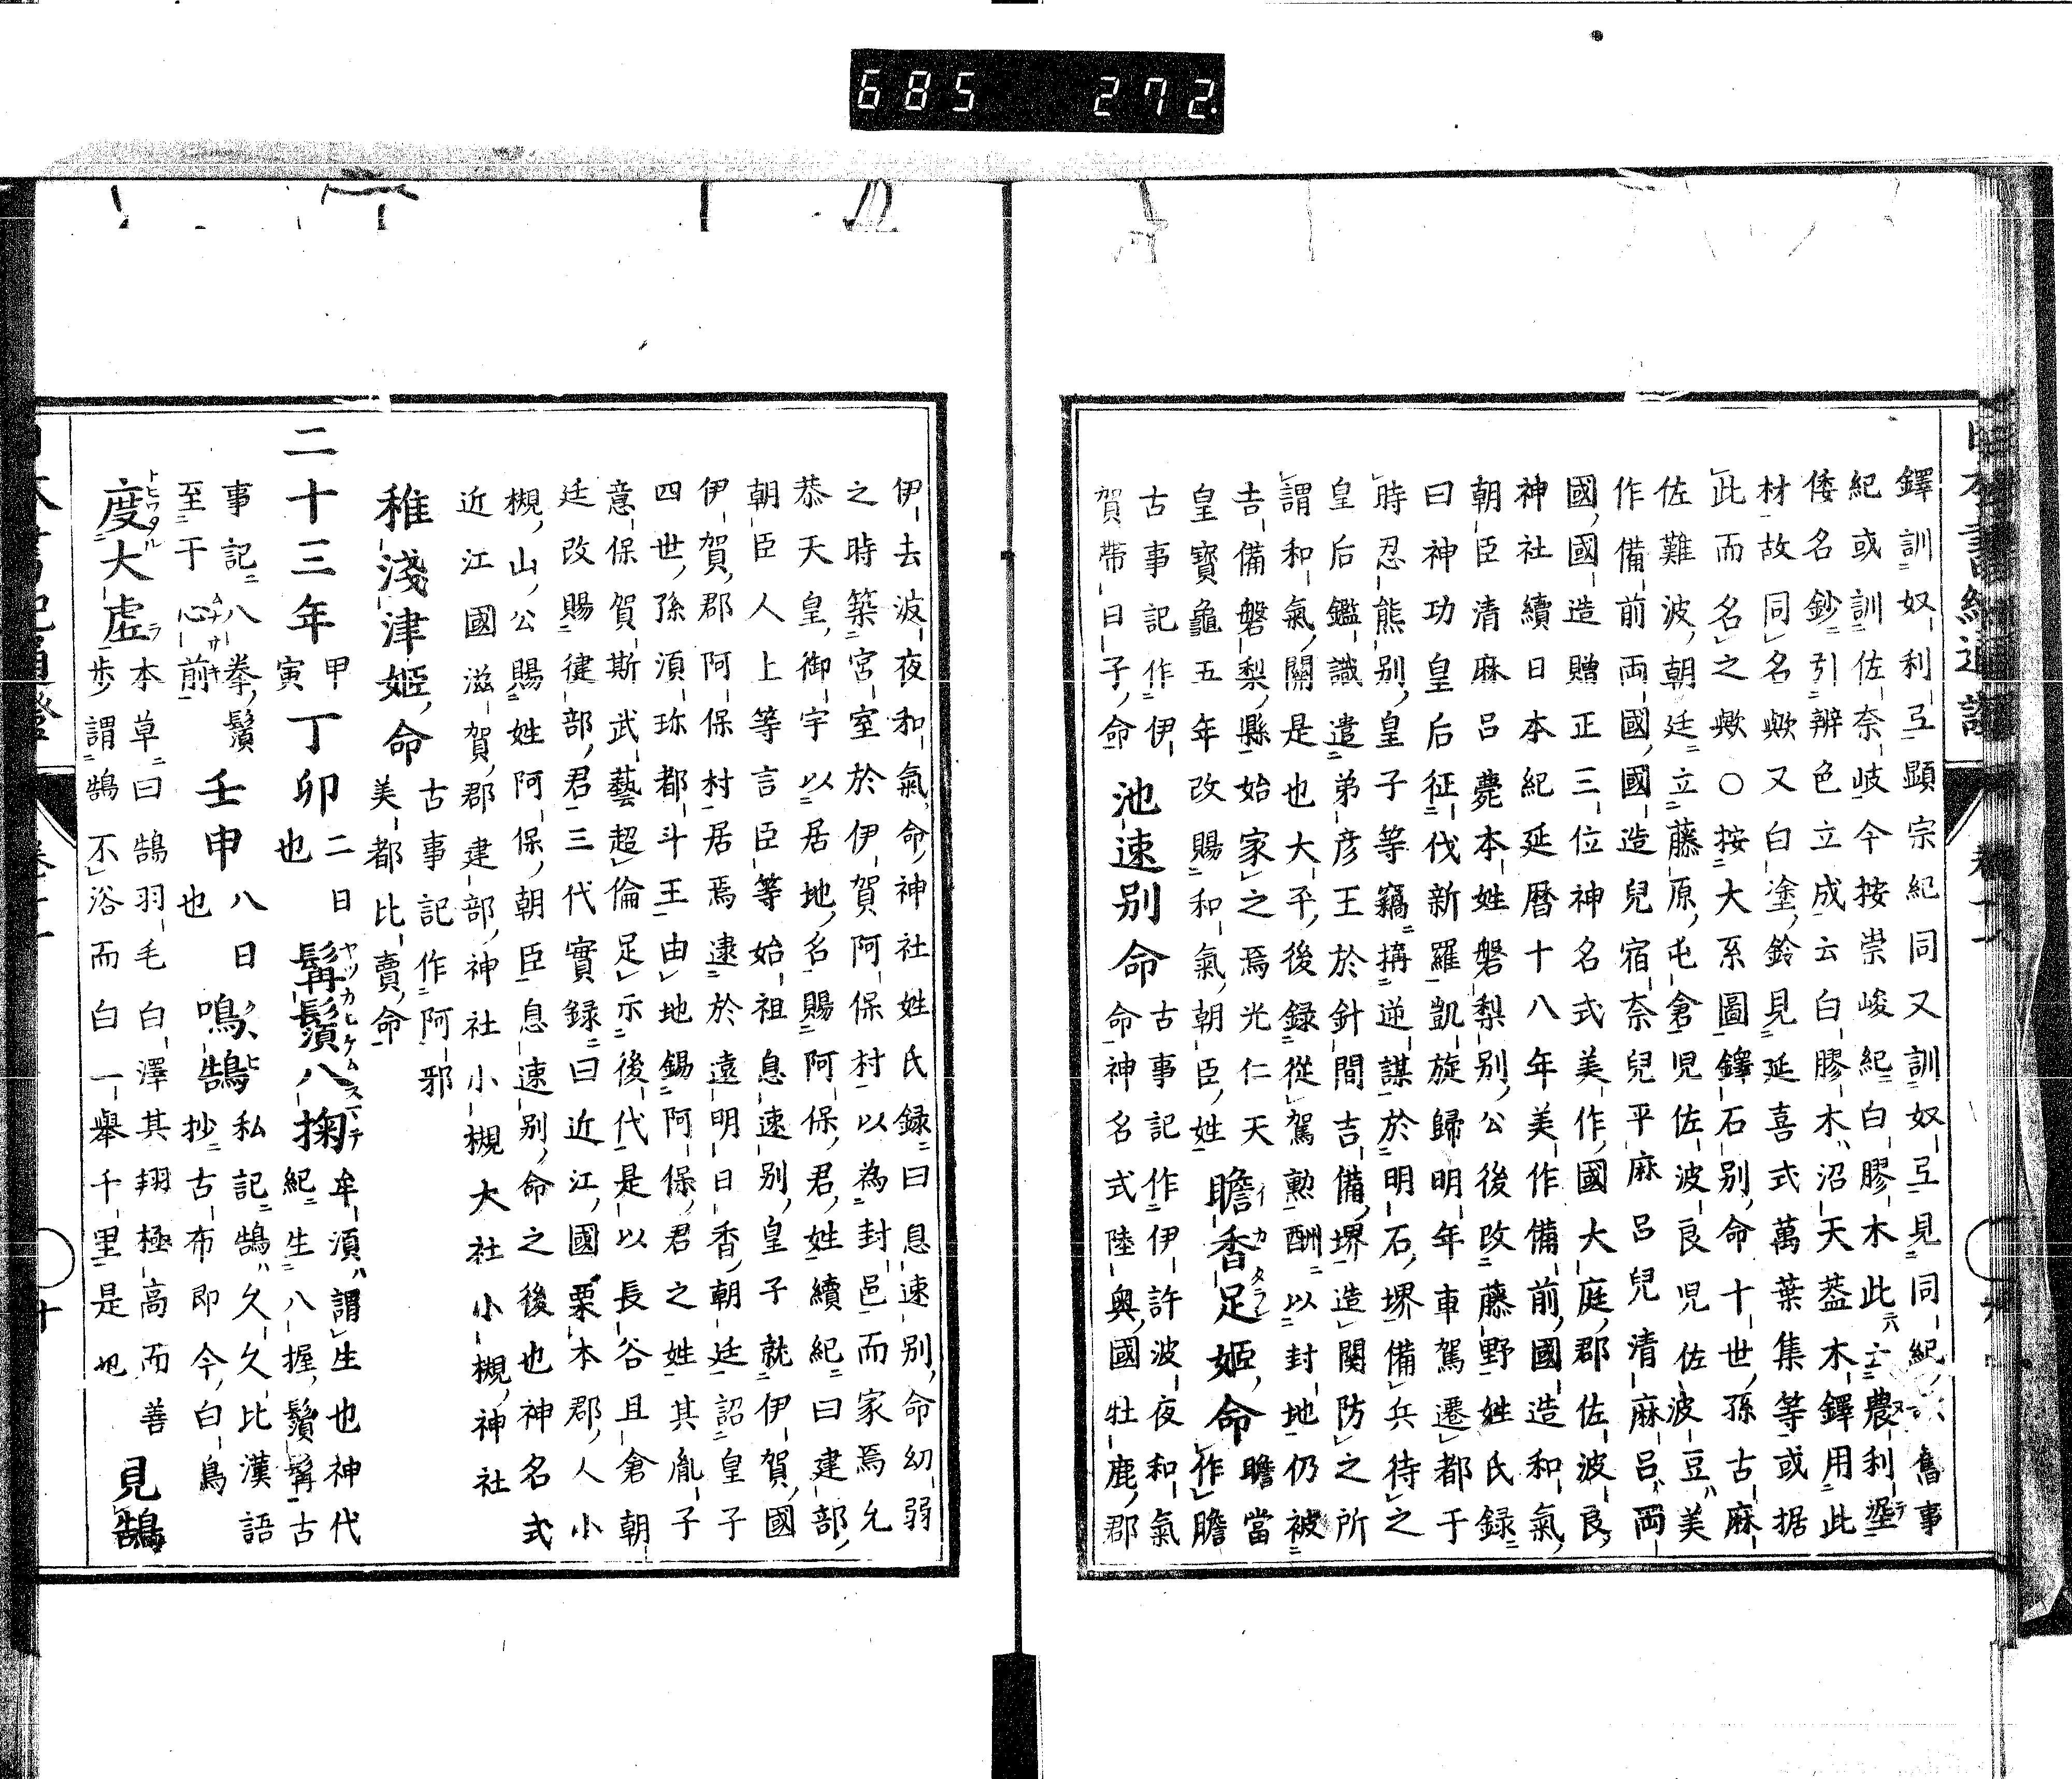 685 272.
鐸訓奴利弖顕宗紀同又訓奴弖見同紀舊事
紀或訓佐奈岐今按崇峻紀白膠木此云農利埿
倭名鈔引辨色立成云白膠木沼天蓋木鐸用此
材故同名歟又白塗鈴見延喜式萬葉集等或据
此而名之歟○按大系圖鐸石別命十世孫古麻
佐難波朝廷立藤原屯倉児佐波良児佐波豆美
作備前両國國造兒宿奈兒平麻呂兒清麻呂両
國國造贈正三位神名式美作國大庭郡佐波良
神社續日本紀延暦十八年美作備前國造和氣
朝臣清麻呂薨本姓磐梨別公後改藤野姓氏録
曰神功皇后征伐新羅凱旋歸明年車駕遷都于
時忍熊別皇子等竊搆逆謀於明石堺備兵待之
皇后鑑識遣弟彦王於針間吉備堺造関防之所
謂和氣關是也大平後録從駕勲酬以封地仍被
吉備磐梨縣始家之焉光仁天
皇寶龜五年改賜和氣朝臣姓
瞻香足姬命
イカタラシ
瞻當
作膽
古事記作伊
賀帶日子命
池速別命
古事記作伊許波夜和氣
命神名式陸奥國牡鹿郡
伊去波夜和氣命神社姓氏録曰息速別命幼弱
之時築宮室於伊賀阿保村以為封邑而家焉允
恭天皇御宇以居地名賜阿保君姓續紀曰建部
朝臣人上等言臣等始祖息速別皇子就伊賀國
伊賀郡阿保村居焉逮於遠明日香朝廷詔皇子
四世孫湏珎都斗王由地錫阿保君之姓其胤子
意保賀斯武藝超倫足示後代是以長谷且倉朝
廷改賜健部君三代實録曰近江國栗本郡人小
槻山公賜姓阿保朝臣息速別命之後也神名式
近江國滋賀郡建部神社小槻大社小槻神社
稚淺津姬命
古事記作阿邪
美都比賣命
二十三年
甲
寅
丁卯
二日
也
髯鬚八掬
ヤツカヒケムスマテ
牟湏謂生也神代
紀生八握鬚髯古
事記八拳鬚
至于心前
ムナサキ
壬申
八日
也
鳴鵠
クヒ
私記鵠久久比漢語
抄古布即今白鳥
度大虚
トヒワタル
本草曰鵠羽毛白澤其翔極高而善
歩謂鵠不浴而白一舉千里是也
見鵠